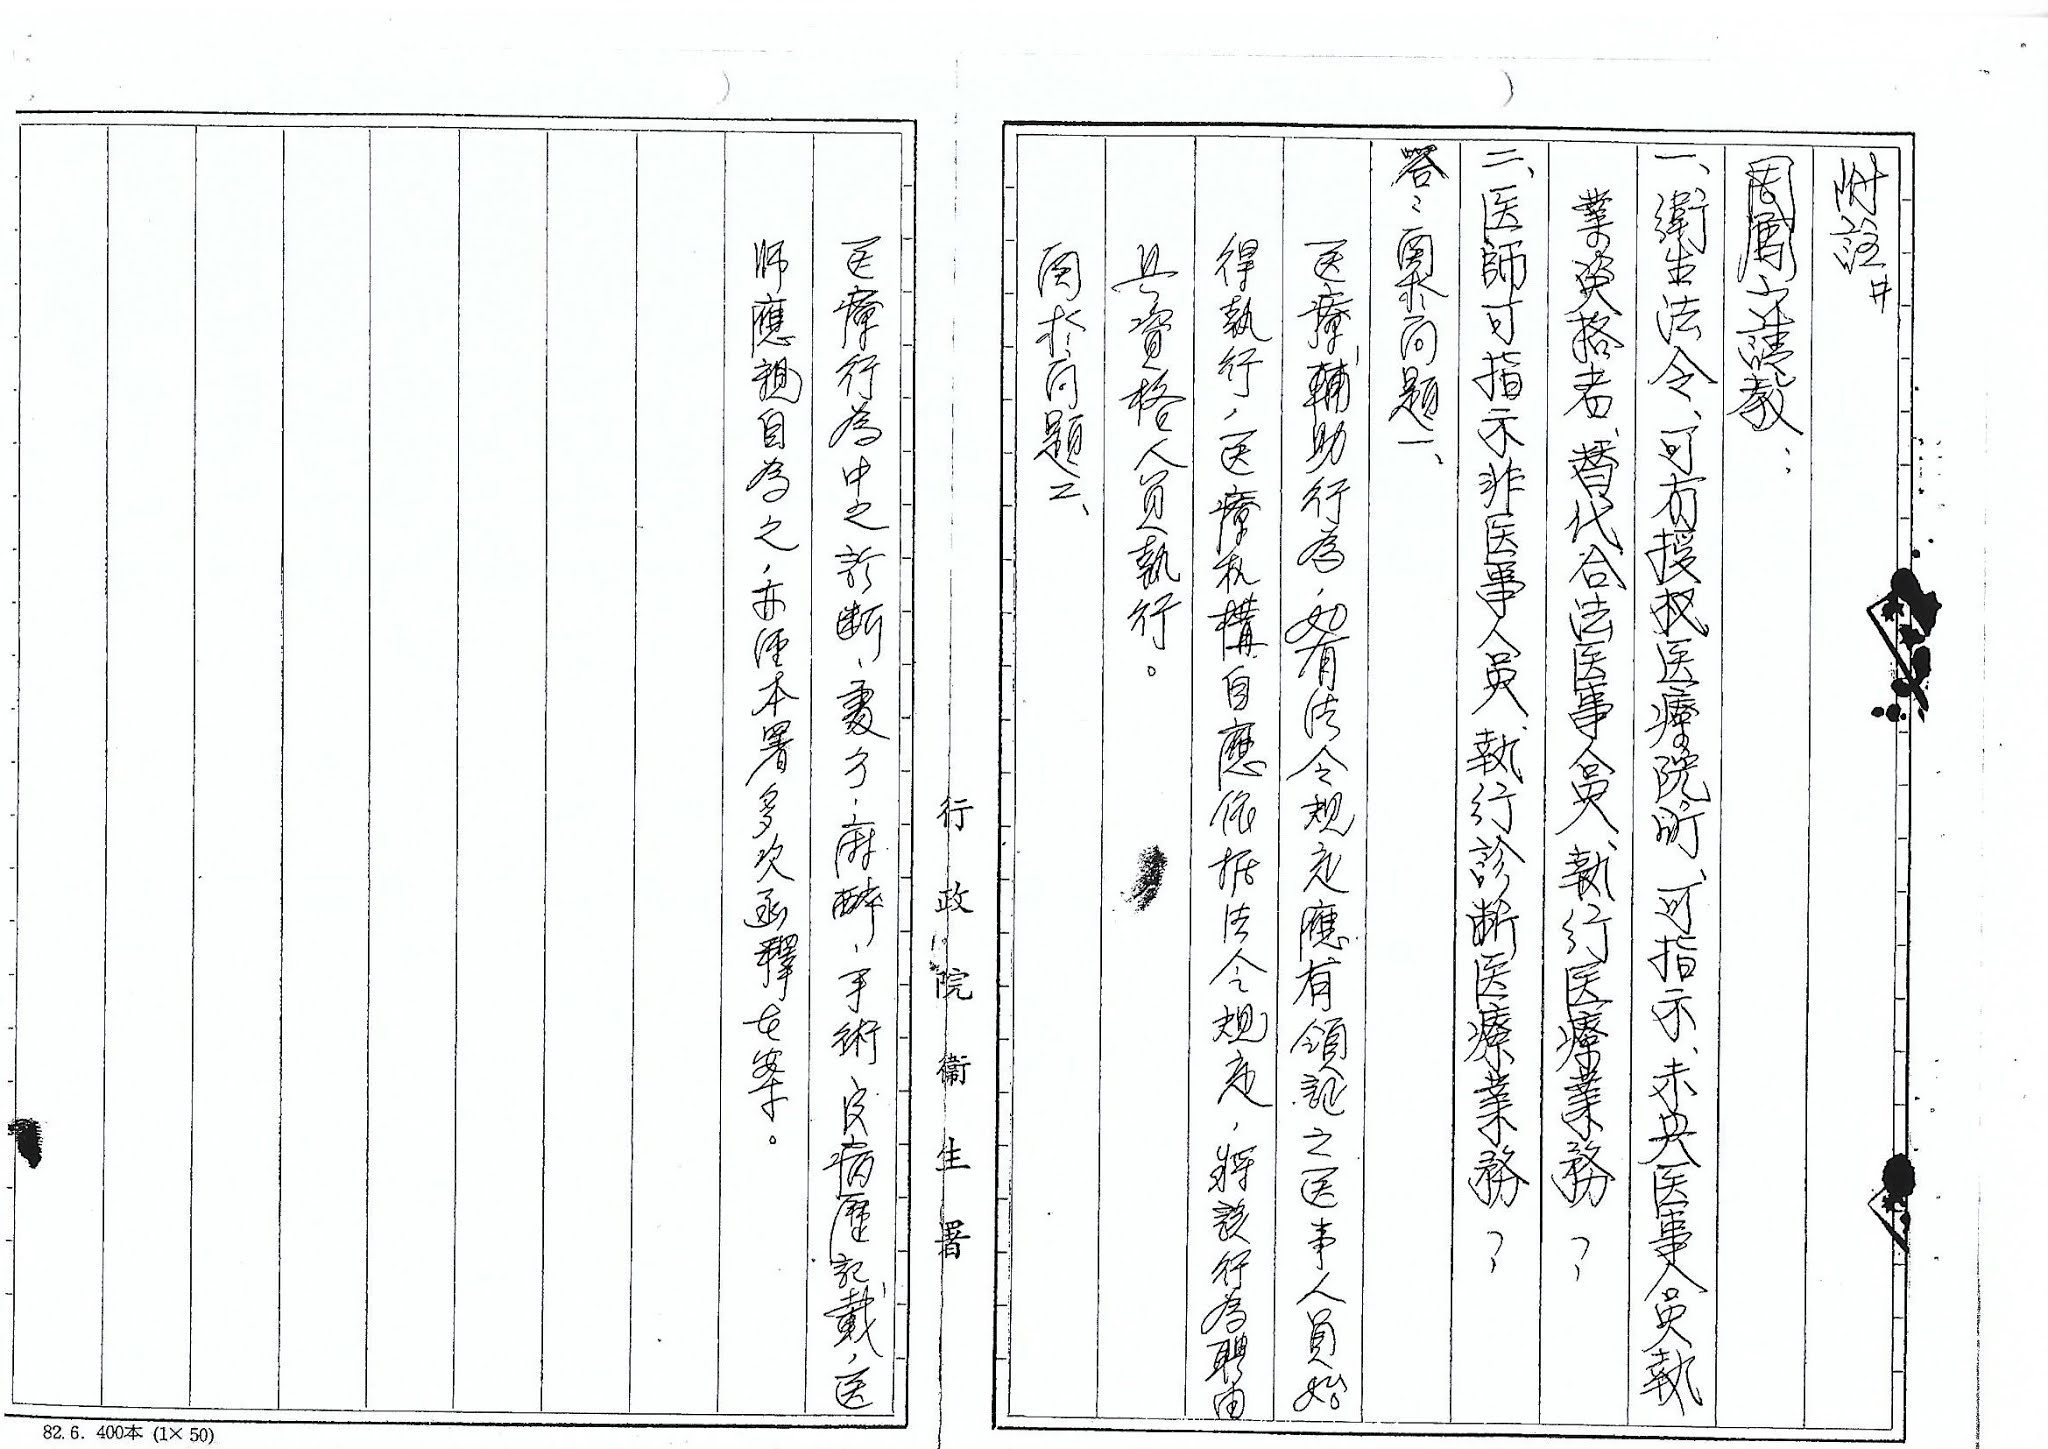 附註#
周圍之請教：
一、衛生法令、可有授权医療院所、可指示、未具医事人員執
業資格者、替代合法医事人員、執行医療業務？
二、医師可指示非医事人員、執行診断医療業務？
答：関於问題一、
医療輔助行為，如有法令規定應有領証之医事人員始
得執行，医療机構自應依据法令規定，將該行為聘由
具資格人員執行。
関於问題二、
行政院衛生署
医療行為中之診断、處方、麻醉、手術、及病歷記載，医
師應親自為之，亦經本署多次函釋在案。
82. 6. 400本 (1×50)